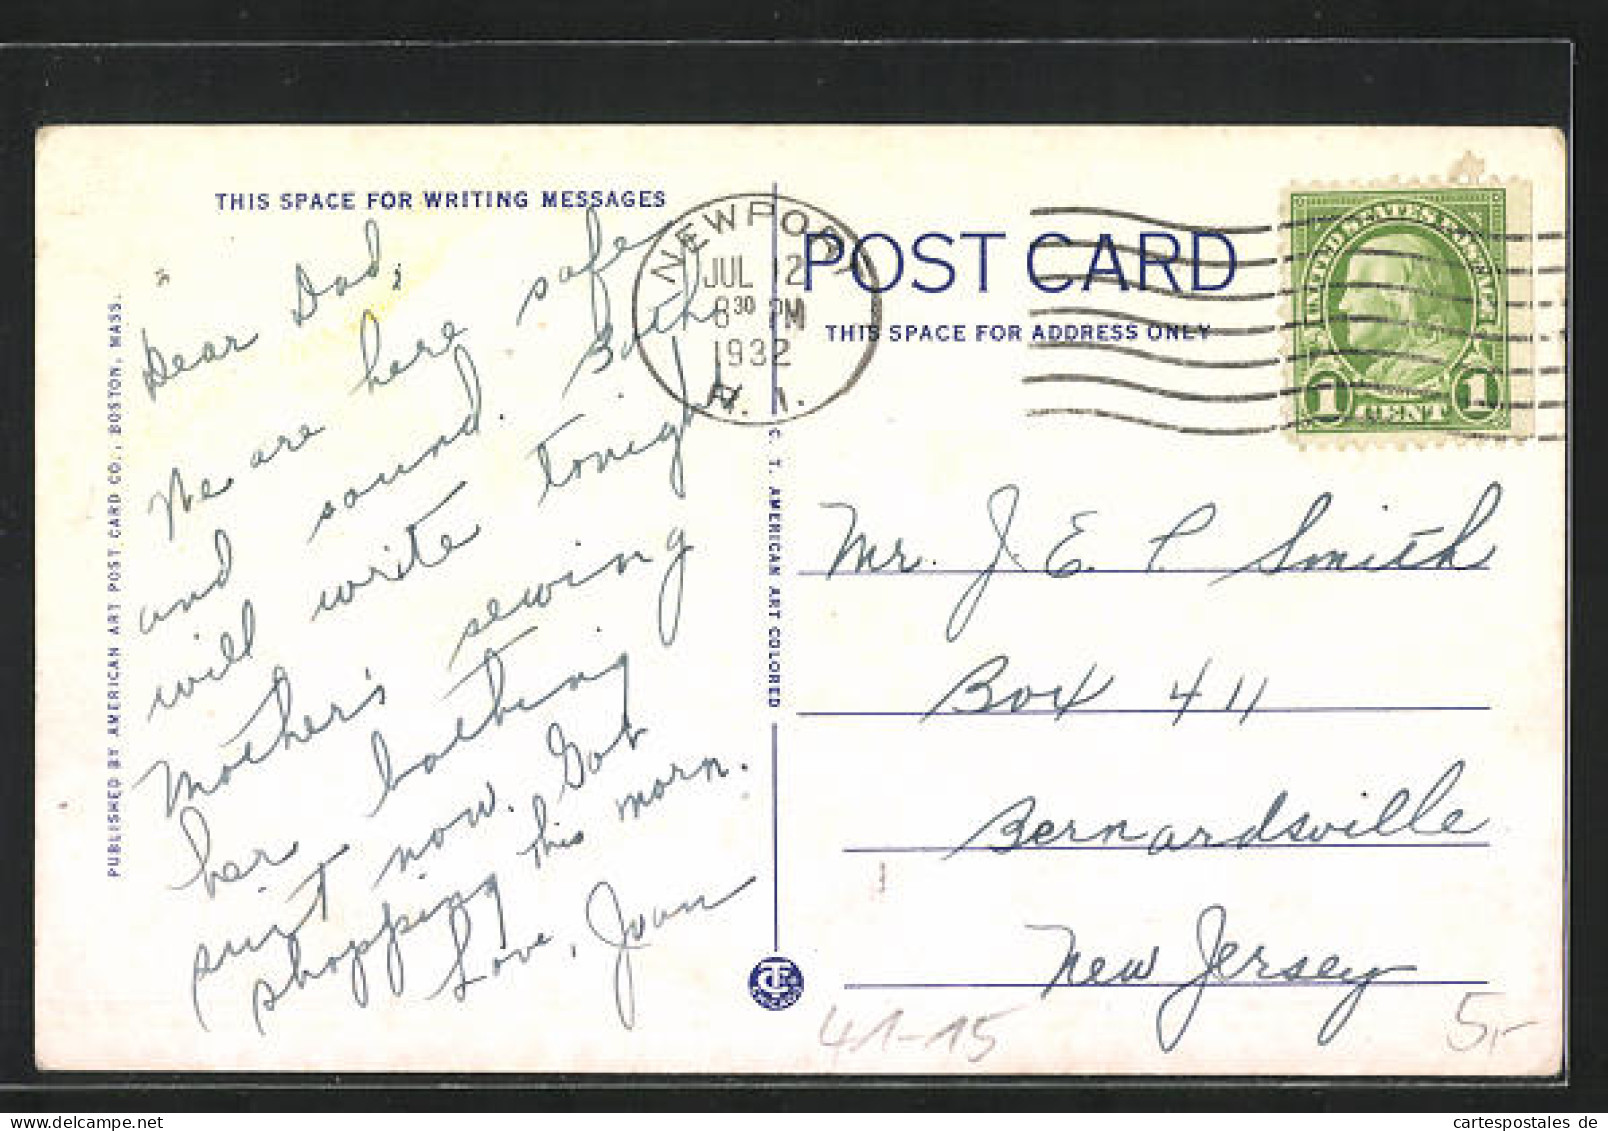 THIS SPACE FOR WRITING MESSAGES
Dear Dad,
We are here safe
and sound. Both
will write tonight
Mother's sewing
her bathing
suit now. Got
shopping this morn.
Love, Joan
PUBLISHED BY AMERICAN ART POST CARD CO., BOSTON, MASS.
C. T. AMERICAN ART COLORED
NEWPORT
JUL 12
8 30 PM
1932
R. I.
POST CARD
THIS SPACE FOR ADDRESS ONLY
UNITED STATES POSTAGE
1 CENT 1
Mr. J. E. P. Smith
Box 411
Bernardsville
New Jersey
41-15
5,-
cartespostales de